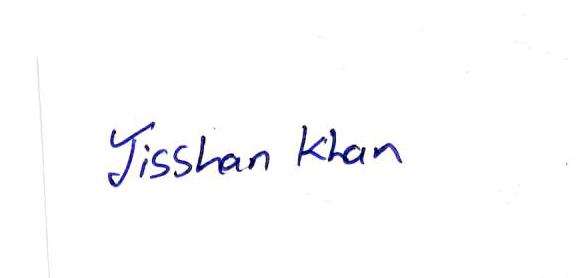 Jisshan Khan